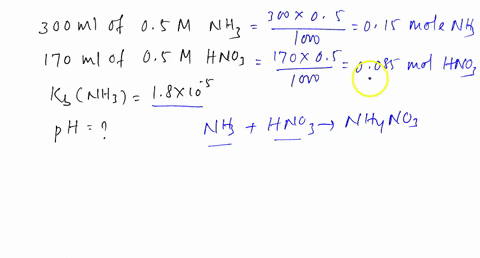 300 ml of 0.5 M NH₃ = 300 × 0.5 / 1000 = 0.15 mole NH₃
170 ml of 0.5 M HNO₃ = 170 × 0.5 / 1000 = 0.085 mol HNO₃
Kb (NH₃) = 1.8×10⁻⁵
pH = ? NH₃ + HNO₃ → NH₄NO₃